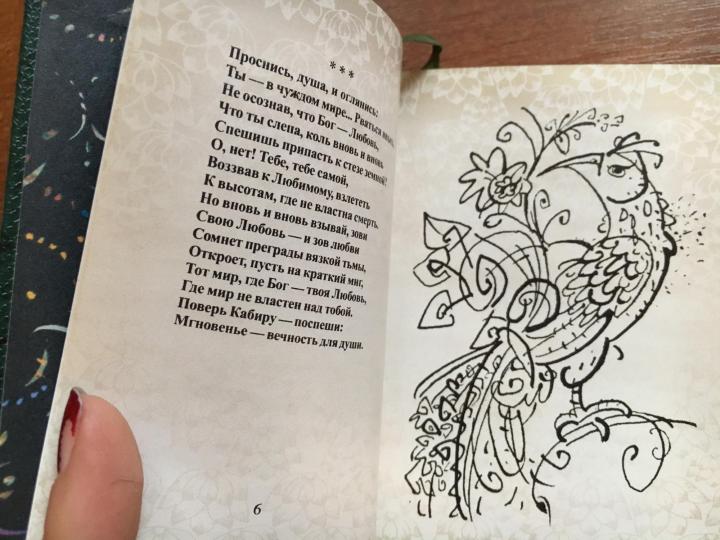 ***
Проснись, душа, и оглянись:
Ты — в чуждом мире.. Рваться
Не осознав, что Бог — Любовь,
Что ты слепа, коль вновь и вновь
Спешишь припасть к стезе земной?
О, нет! Тебе, тебе самой,
Воззвав к Любимому, взлететь
К высотам, где не властна смерть.
Но вновь и вновь взывай, зови
Свою Любовь — и зов любви
Сомнет преграды вязкой тьмы,
Откроет, пусть на краткий миг,
Тот мир, где Бог — твоя Любовь,
Где мир не властен над тобой.
Поверь Кабиру — поспеши:
Мгновенье — вечность для души.
6